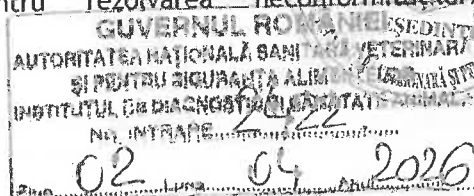 rezolvarea neconformităților
GUVERNUL ROMÂNIEI ȘEDINȚ
AUTORITATEA NAȚIONALĂ SANITARĂ VETERINARĂ
ȘI PENTRU SIGURANȚA
INSTITUTUL DE DIAGNOSTIC SĂNĂTATE ANIMALĂ
NR. INTRARE 2422
Ziua 02 Luna 04 Anul 2026